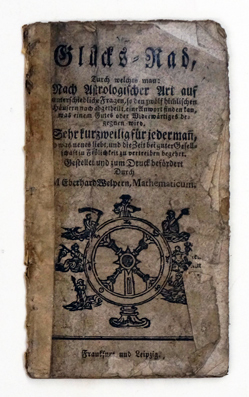 Glücks-Rad,
Durch welches man
Nach Astrologischer Art auf
unterschiedliche Fragen, so den zwölf himlischen
Häusern nach abgetheilt, eine Antwort finden kan,
was einem Gutes oder Widerwärtiges be-
gegnen wird.
Sehr kurzweilig für jederman,
was neues liebt, und die Zeit bei guter Gesell-
schafft in Frölichkeit zu vertreiben begehrt.
Gestellet und zum Druck befördert
Durch
Eberhard Welpern, Mathematicum.
Franckfurt und Leipzig.